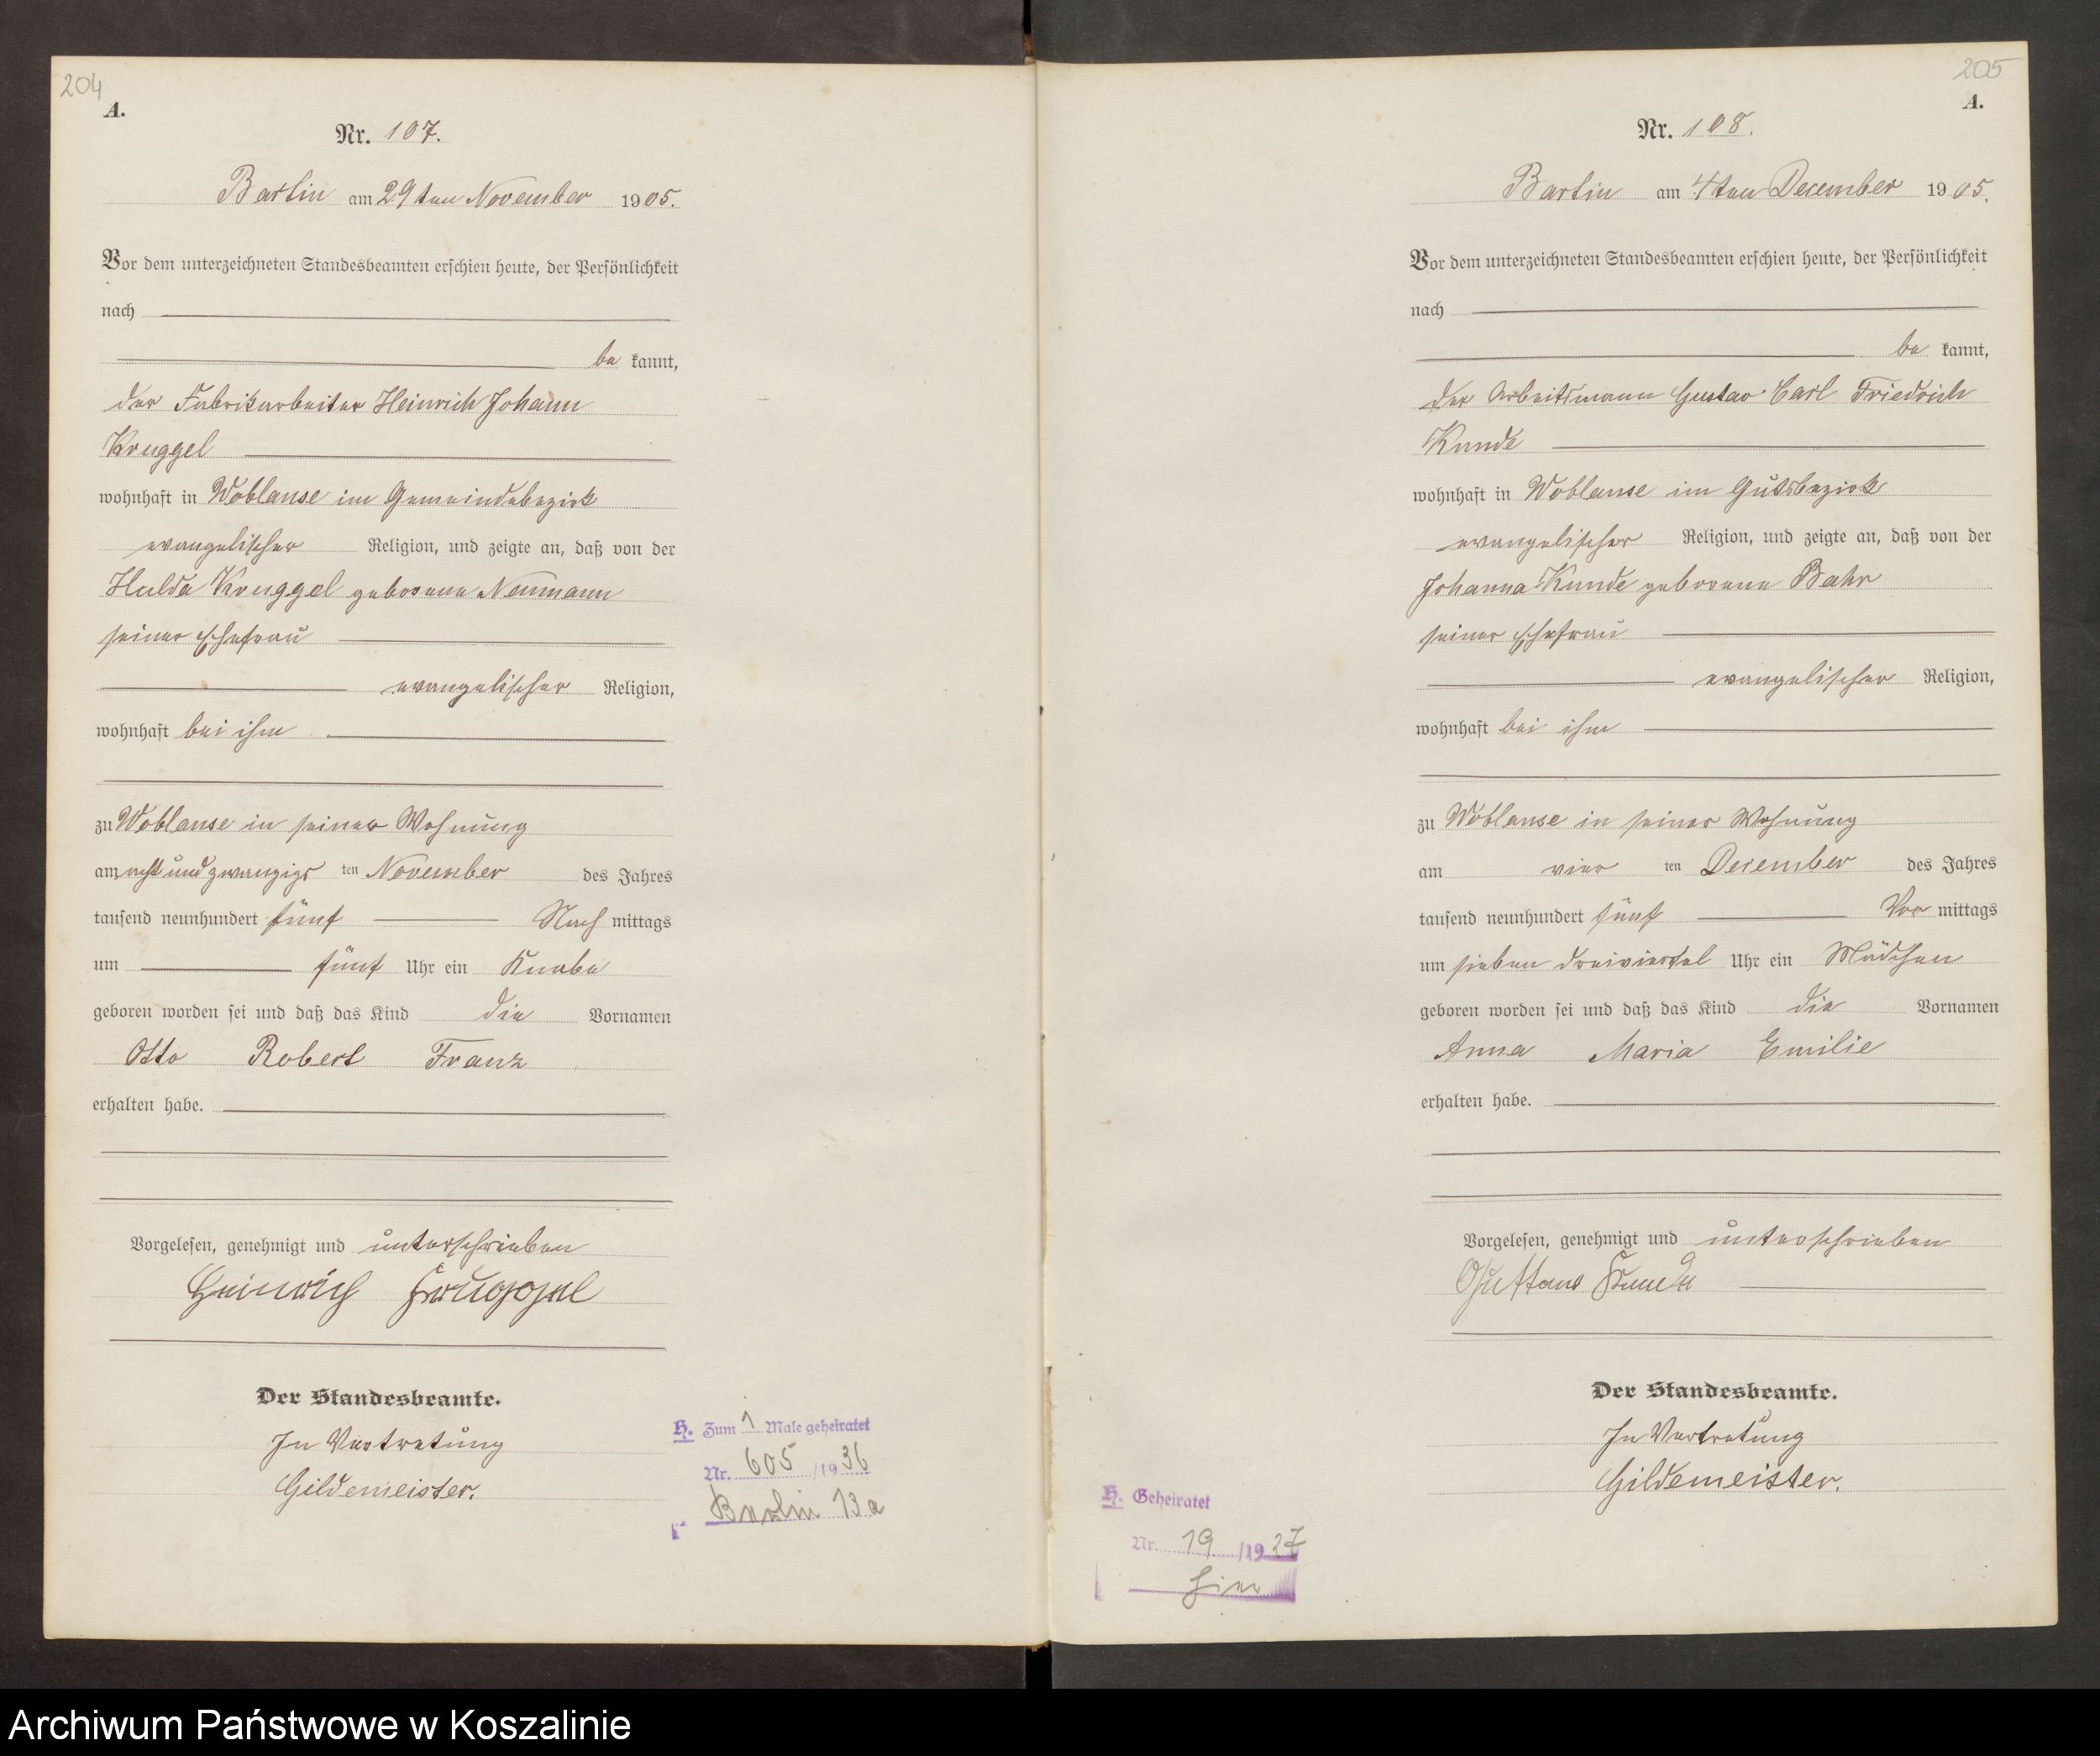 204
A.
Nr. 107.
Bartin am 29ten November 1905.
Vor dem unterzeichneten Standesbeamten erschien heute, der Persönlichkeit
nach
be kannt,
der Fabrikarbeiter Heinrich Johann
Kruggel
wohnhaft in Woblanse im Gemeindebezirk
evangelischer Religion, und zeigte an, daß von der
Hulda Kruggel geborene Neumann
seiner Ehefrau
evangelischer Religion,
wohnhaft bei ihm
zu Woblanse in seiner Wohnung
am acht und zwanzigsten November des Jahres
tausend neunhundert fünf Nach mittags
um fünf Uhr ein Knabe
geboren worden sei und daß das Kind die Vornamen
Otto Robert Franz
erhalten habe.
Vorgelesen, genehmigt und unterschrieben
Heinrich Kruggel
Der Standesbeamte.
In Vertretung
Gildemeister.
H. Zum 1 Male geheiratet
Nr. 605/1936
Berlin 13a
205
A.
Nr. 108.
Bartin am 4ten December 1905.
Vor dem unterzeichneten Standesbeamten erschien heute, der Persönlichkeit
nach
be kannt,
der Arbeitsmann Gustav Carl Friedrich
Kunde
wohnhaft in Woblanse im Gutsbezirk
evangelischer Religion, und zeigte an, daß von der
Johanna Kunde geborene Bahr
seiner Ehefrau
evangelischer Religion,
wohnhaft bei ihm
zu Woblanse in seiner Wohnung
am vier ten December des Jahres
tausend neunhundert fünf Vor mittags
um sieben dreiviertel Uhr ein Mädchen
geboren worden sei und daß das Kind die Vornamen
Anna Maria Emilie
erhalten habe.
Vorgelesen, genehmigt und unterschrieben
Gustav Kunde
Der Standesbeamte.
In Vertretung
Gildemeister.
H. Geheiratet
Nr. 19/1927
hier
Archiwum Państwowe w Koszalinie